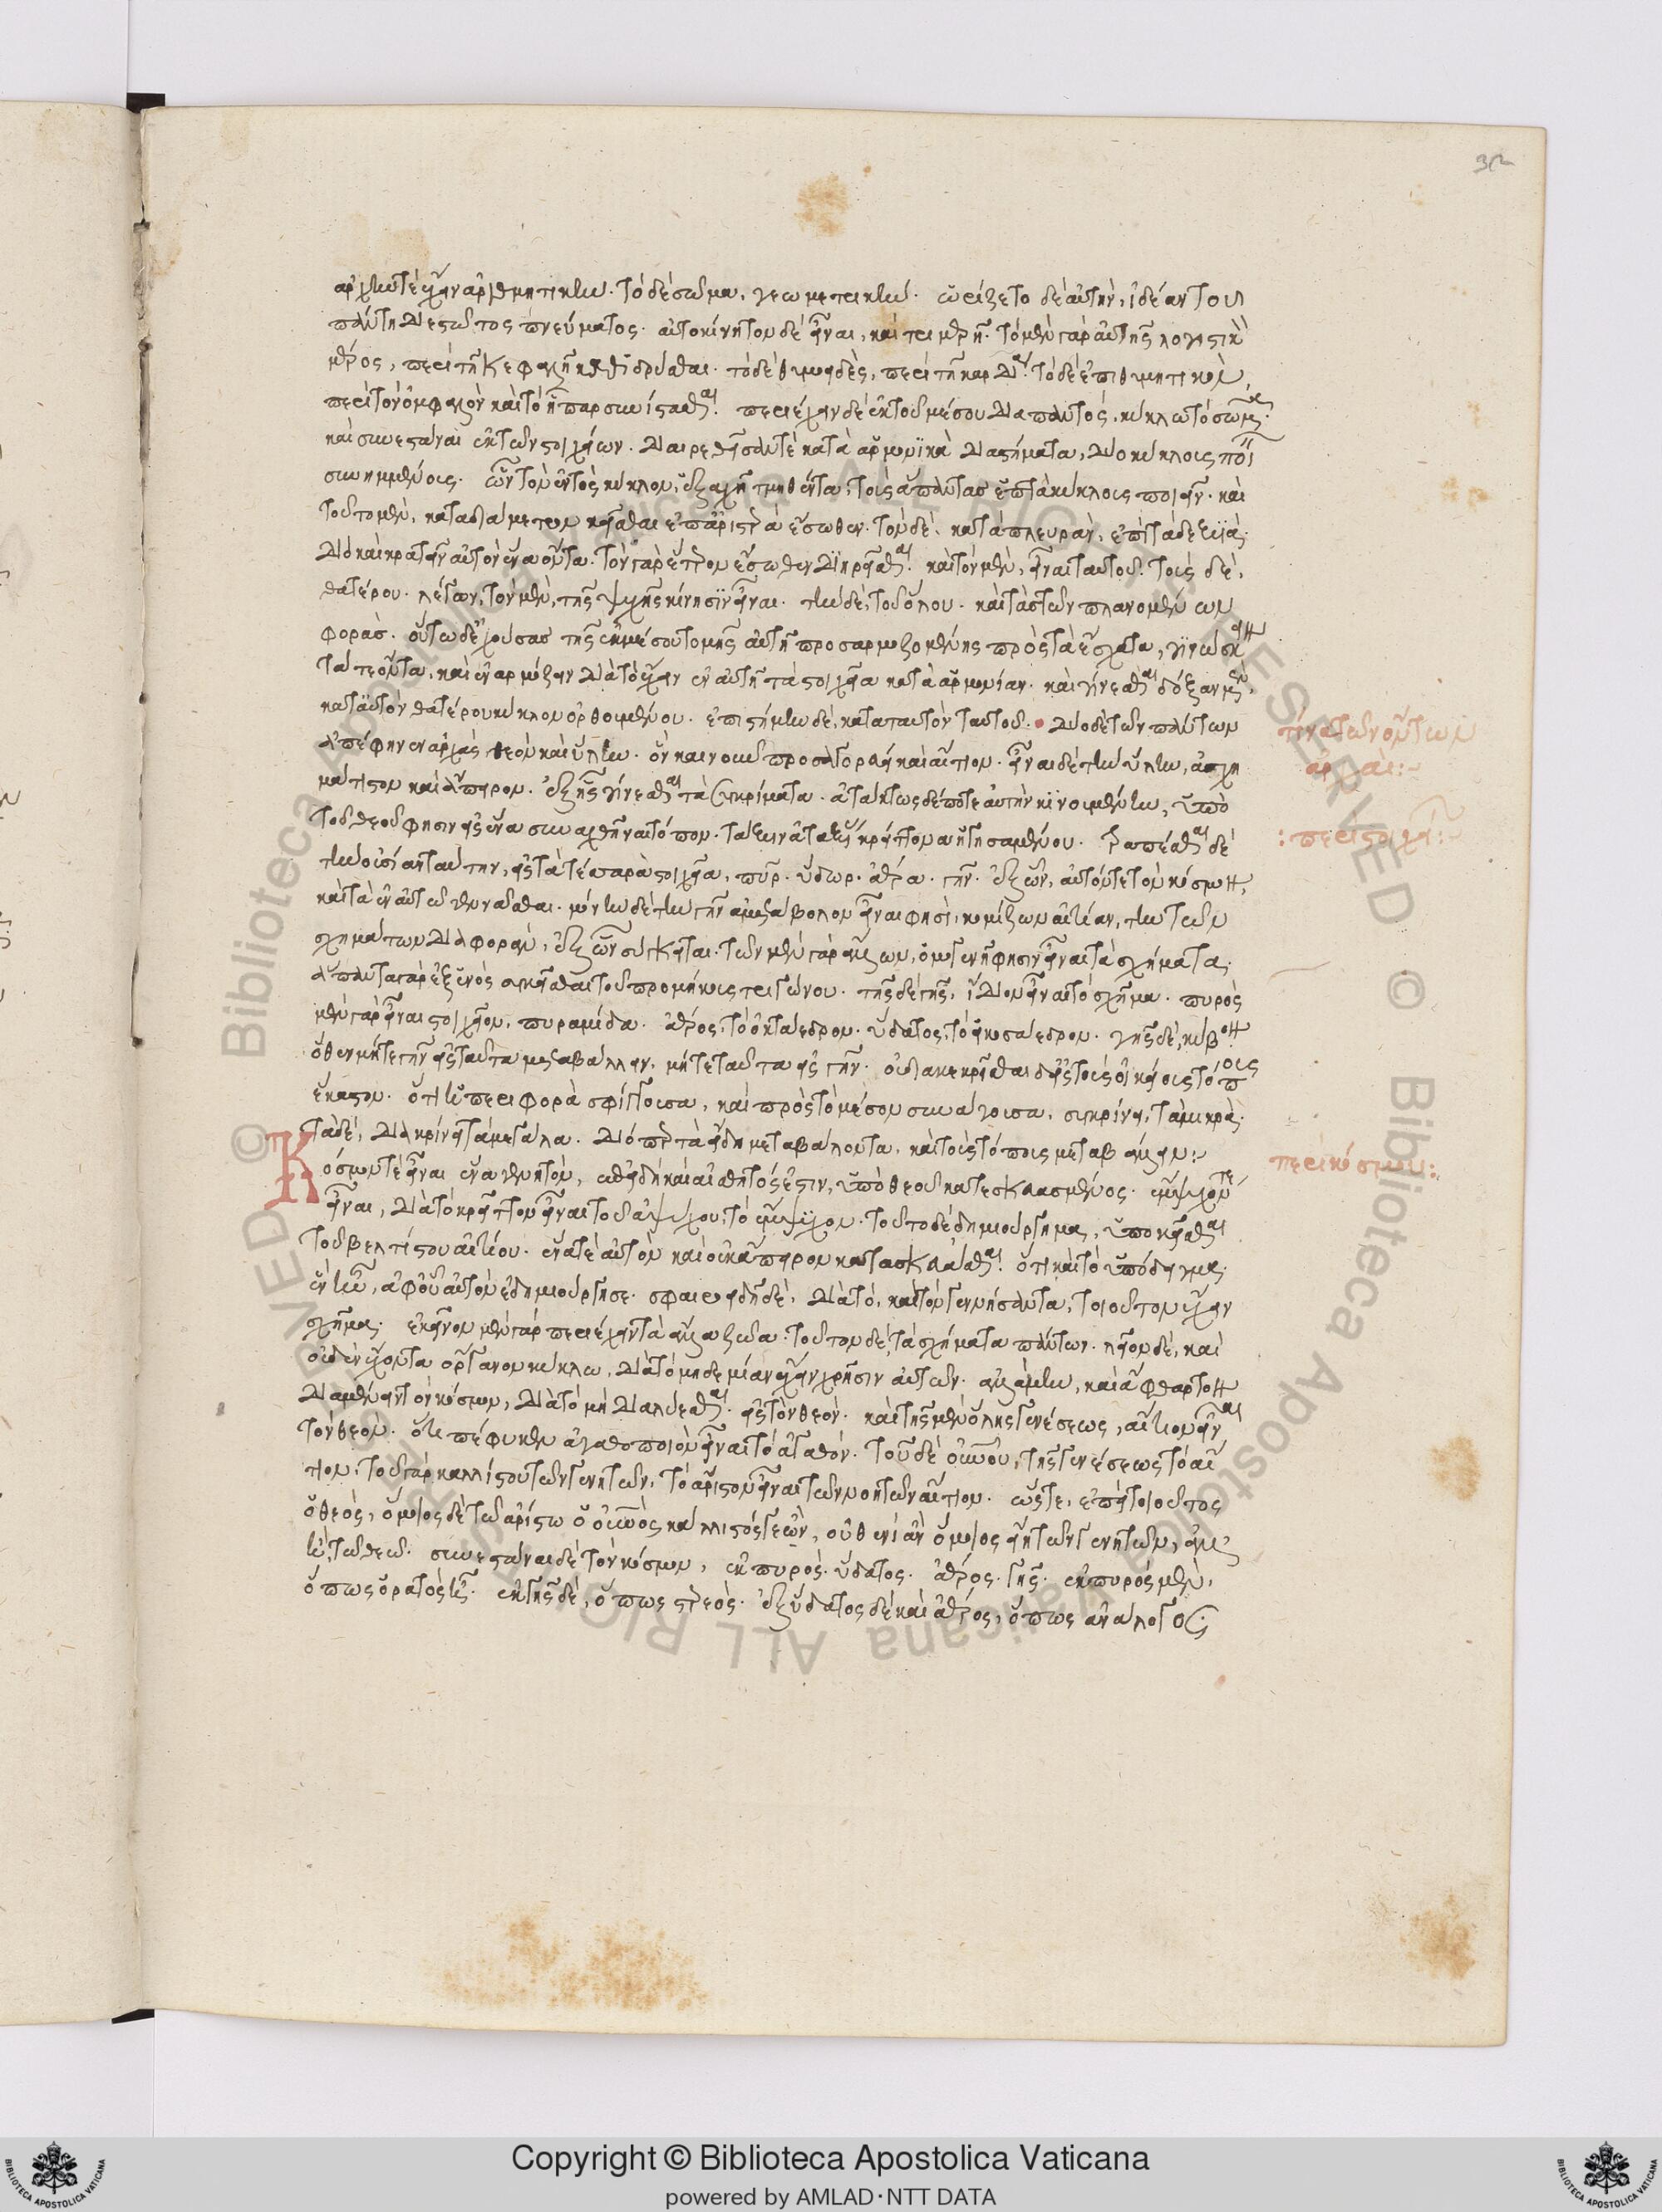 ἀρχήν τε ἔχειν ἀριθμητικήν. τὸ δὲ σῶμα, γεωμετρικήν. ὡρίζετο δὲ αὐτὴν, ἰδέαν τοῦ
πάντη διεστῶτος πνεύματος. αὐτοκίνητον δὲ εἶναι, καὶ τριμερῆ. τὸ μὲν γὰρ αὐτῆς λογιστικὸν
μέρος, περὶ τὴν κεφαλὴν καθιδρύσθαι. τὸ δὲ θυμοειδὲς, περὶ τὴν καρδίαν. τὸ δὲ ἐπιθυμητικὸν,
περὶ τὸν ὀμφαλὸν καὶ τὸ ἧπαρ συνίστασθαι. περιέχειν δὲ ἐκ τοῦ μέσου διαπαντὸς, κύκλω τὸ σῶμα.
καὶ συνεστάναι ἐκ τῶν στοιχείων. διαιρεθεῖσάν τε κατὰ ἁρμονϊκὰ διαστήματα, δύο κύκλοις ποι
συνημμένοις. ὧν τὸν ἐντὸς κύκλον, ἑξαχῆ τμηθέντα, τοὺς ἅπαντας ἑπτὰ κύκλους ποιεῖν. καὶ
τοῦτον μὲν, κατὰ διάμετρον κεῖσθαι ἐπ' ἀριστερὰ ἔσωθεν. τὸν δὲ, κατὰ πλευρὰν, ἐπὶ τὰ δεξιϊά.
διὸ καὶ κρατεῖν αὐτὸν ἕνα ὄντα. τὸν γὰρ ἕτερον ἔσωθεν διηρῆσθαι. καὶ τὸν μὲν, εἶναι ταυτοῦ. τοὺς δὲ,
θατέρου. λέγων, τὸν μὲν, τῆς ψυχῆς κίνησϊν εἶναι. τὴν δὲ, τοῦ ὅλου. καὶ τὰς τῶν πλανομένων
φοράς. οὕτω δ' ἐχούσας τῆς ἐκ μέσου τομῆς αὐτῆ προσαρμοζομένης πρὸς τὰ ἔσχατα, γϊνώσκειν
τά τε ὄντα, καὶ ἐναρμόζειν διὰ τὸ ἔχειν ἐν αὐτῆ τὰ στοιχεῖα κατὰ ἁρμονίαν. καὶ γίνεσθαι δόξαν μὲν,
κατὰ τὸν θατέρου κύκλον ὀρθούμενον. ἐπιστήμην δὲ, κατὰ τὸν ταυτοῦ. δύο δὲ τῶν πάντων
ἀπέφηνεν ἀρχὰς θεὸν καὶ ὕλην. ὃν καὶ νοῦν προσαγορεύει καὶ αἴτιον. εἶναι δὲ τὴν ὕλην, ἀσχη
μάτιστον καὶ ἄπειρον. ἐξ ἧς γίνεσθαι τὰ συγκρίματα. ἀτάκτως δέ ποτε αὐτὴν κϊνουμένην, ὑπὸ
τοῦ θεοῦ φησιν εἰς ἕνα συναχθῆναι τόπον. τάξιν ἀταξίας κρείττονα ἡγησαμένου. τραπέσθαι δὲ
τὴν οὐσίαν ταύτην, εἰς τὰ τέσσαρα στοιχεῖα, πῦρ. ὕδωρ. ἀέρα. γῆν. ἐξ ὧν, αὐτόν τε τὸν κόσμον,
καὶ τὰ ἐν αὐτῶ γεννᾶσθαι. μόνην δὲ τὴν γῆν ἀμετάβολον εἶναι φησὶ, νομίζων αἰτίαν, τὴν τῶν
σχημάτων διαφορὰν, ἐξ ὧν σύγκειται. τῶν μὲν γὰρ ἄλλων, ὁμογενῆ φησιν εἶναι τὰ σχήματα.
ἅπαντα γὰρ ἐξ ἑνὸς συγκεῖσθαι τοῦ προμήκους τριγώνου. τῆς δὲ γῆς, ἴδιον εἶναι τὸ σχῆμα. πυρὸς
μὲν γὰρ εἶναι στοιχεῖον, πυραμίδα. ἀέρος, τὸ ὀκτάεδρον. ὕδατος, τὸ εἰκοσάεδρον. γῆς δὲ, κύβον.
ὅθεν μήτε γῆν εἰς ταῦτα μεταβάλλειν. μήτε ταῦτα εἰς γῆν. οὐ διακεκρίσθαι δ' εἰς τοὺς οἰκείους τόπους
ἕκαστον. ὅτι ἡ περιφορὰ σφίγγουσα, καὶ πρὸς τὸ μέσον συνάγουσα, συγκρίνει, τὰ μικρὰ.
τὰ δὲ, διακρίνει τὰ μεγάλα. διόπερ τὰ εἴδη μεταβάλοντα, καὶ τοὺς τόπους μεταβάλλειν:~
Κόσμον τὲ εἶναι ἕνα γεννητὸν, ἐπειδὴ καὶ αἰσθητὸς ἐστιν, ὑπὸ θεοῦ κατεσκευασμένος. ἔμψυχόν τε
εἶναι, διὰ τὸ κρεῖττον εἶναι τοῦ ἀψύχου, τὸ ἔμψϋχον. τοῦτο δὲ δημιούργημα, ὑποκεῖσθαι
τοῦ βελτίστου αἰτίου. ἕνα τὲ αὐτὸν καὶ οὐκ ἄπειρον κατασκευάσθαι. ὅτι καὶ τὸ ὑπόδειγμα.
ἓν ἦν, ἀφ' οὗ αὐτὸν ἐδημιούργησε. σφαιροειδῆ δὲ, διὰ τὸ, καὶ τὸν γεννήσαντα, τοιοῦτον ἔχειν
σχῆμα. ἐκεῖνον μὲν γὰρ περιέχειν τὰ ἄλλα ζῶα. τοῦτον δὲ, τὰ σχήματα πάντων. λεῖον δὲ, καὶ
οὐδὲν ἔχοντα ὄργανον κύκλω, διὰ τὸ μηδεμίαν ἔχειν χρῆσιν αὐτῶν. ἀλλὰ μὴν, καὶ ἄφθαρτον
διαμένειν τὸν κόσμον, διὰ τὸ μὴ διαλύεσθαι εἰς τὸν θεόν. καὶ τῆς μὲν ὅλης γενέσεως, αἴτιον εἶναι
τὸν θεὸν. ὅτι πέφυκεν ἀγαθοποιὸν εἶναι τὸ ἀγαθόν. τοῦ δὲ οὐνοῦ, τῆς γενέσεως τὸ αἴ
τιον, τοῦ γὰρ καλλίστου τῶν γενητῶν, τὸ ἄριστον εἶναι τῶν νοητῶν αἴτιον. ὥστε, ἐπεὶ τοιοῦτος
ὁ θεὸς, ὅμοιος δὲ τῶ ἀρίστω ὁ οὐνὸς κάλλιστός γε ὢν, οὐθενὶ ἂν ὅμοιος εἴη τῶν γενητῶν, ἀλλ'
ἢ, τῶ θεῶ. συνεστάναι δὲ τὸν κόσμον, ἐκ πυρὸς. ὕδατος. ἀέρος. γῆς. ἐκ πυρὸς μὲν,
ὅπως ὁρατὸς ἦ. ἐκ γῆς δὲ, ὅπως στερεὸς. ἐξ ὕδατος δὲ καὶ ἀέρος, ὅπως ἀνάλογος.
τίνα τῶν ὄντων
ἀρχαί:~
: περὶ στοιχεί:~
περὶ κόσμου: